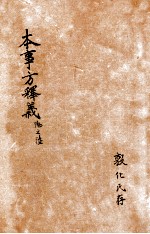 本事方釋義
敦化氏存